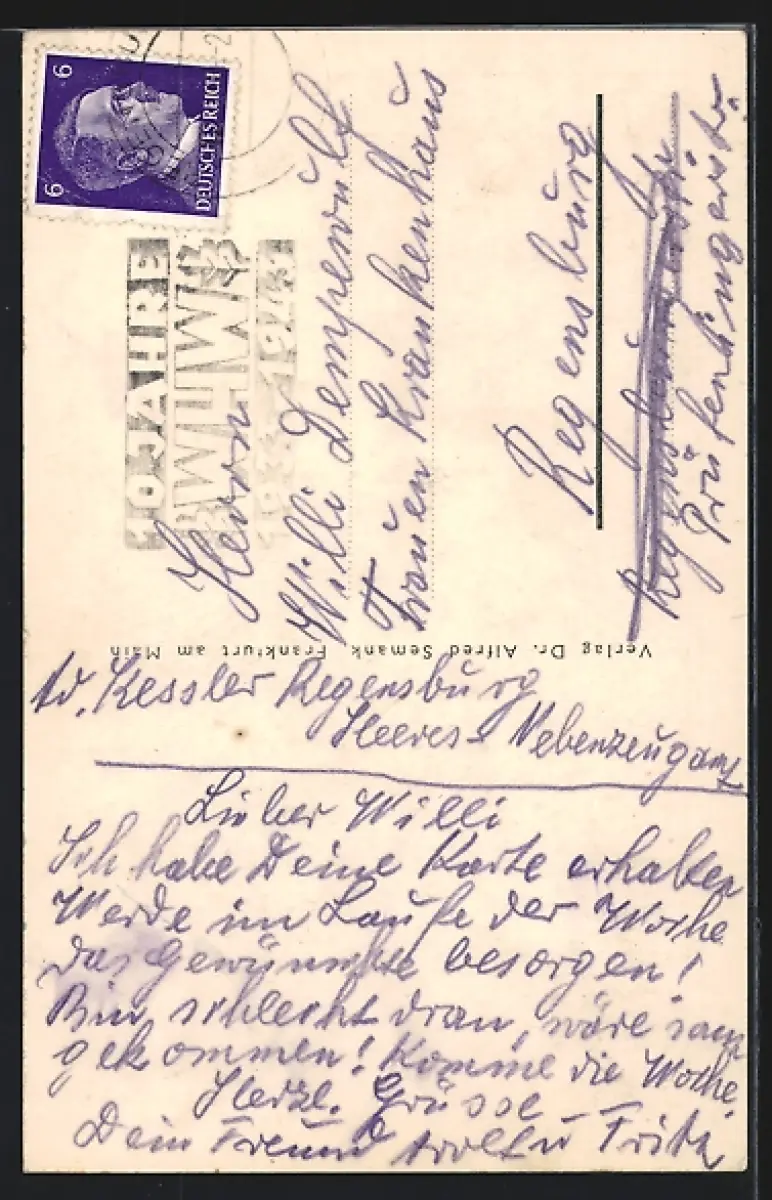 6 6
DEUTSCHES REICH
10 JAHRE
WHW
1933-1943
Herrn
Willi Dempewulf
Frauen Krankenhaus
Regensburg
Prüfeningerstr.
Verlag Dr. Alfred Semank Frankfurt am Main
Kessler Regensburg
Heeres-Nebenzeugamt
Lieber Willi
Ich habe Deine Karte erhalten
Werde im Laufe der Woche
das Gewünschte besorgen!
Bin schlecht dran, wäre
gekommen! Komme die Woche.
Herzl. Grüsse
Dein Freund Fritz